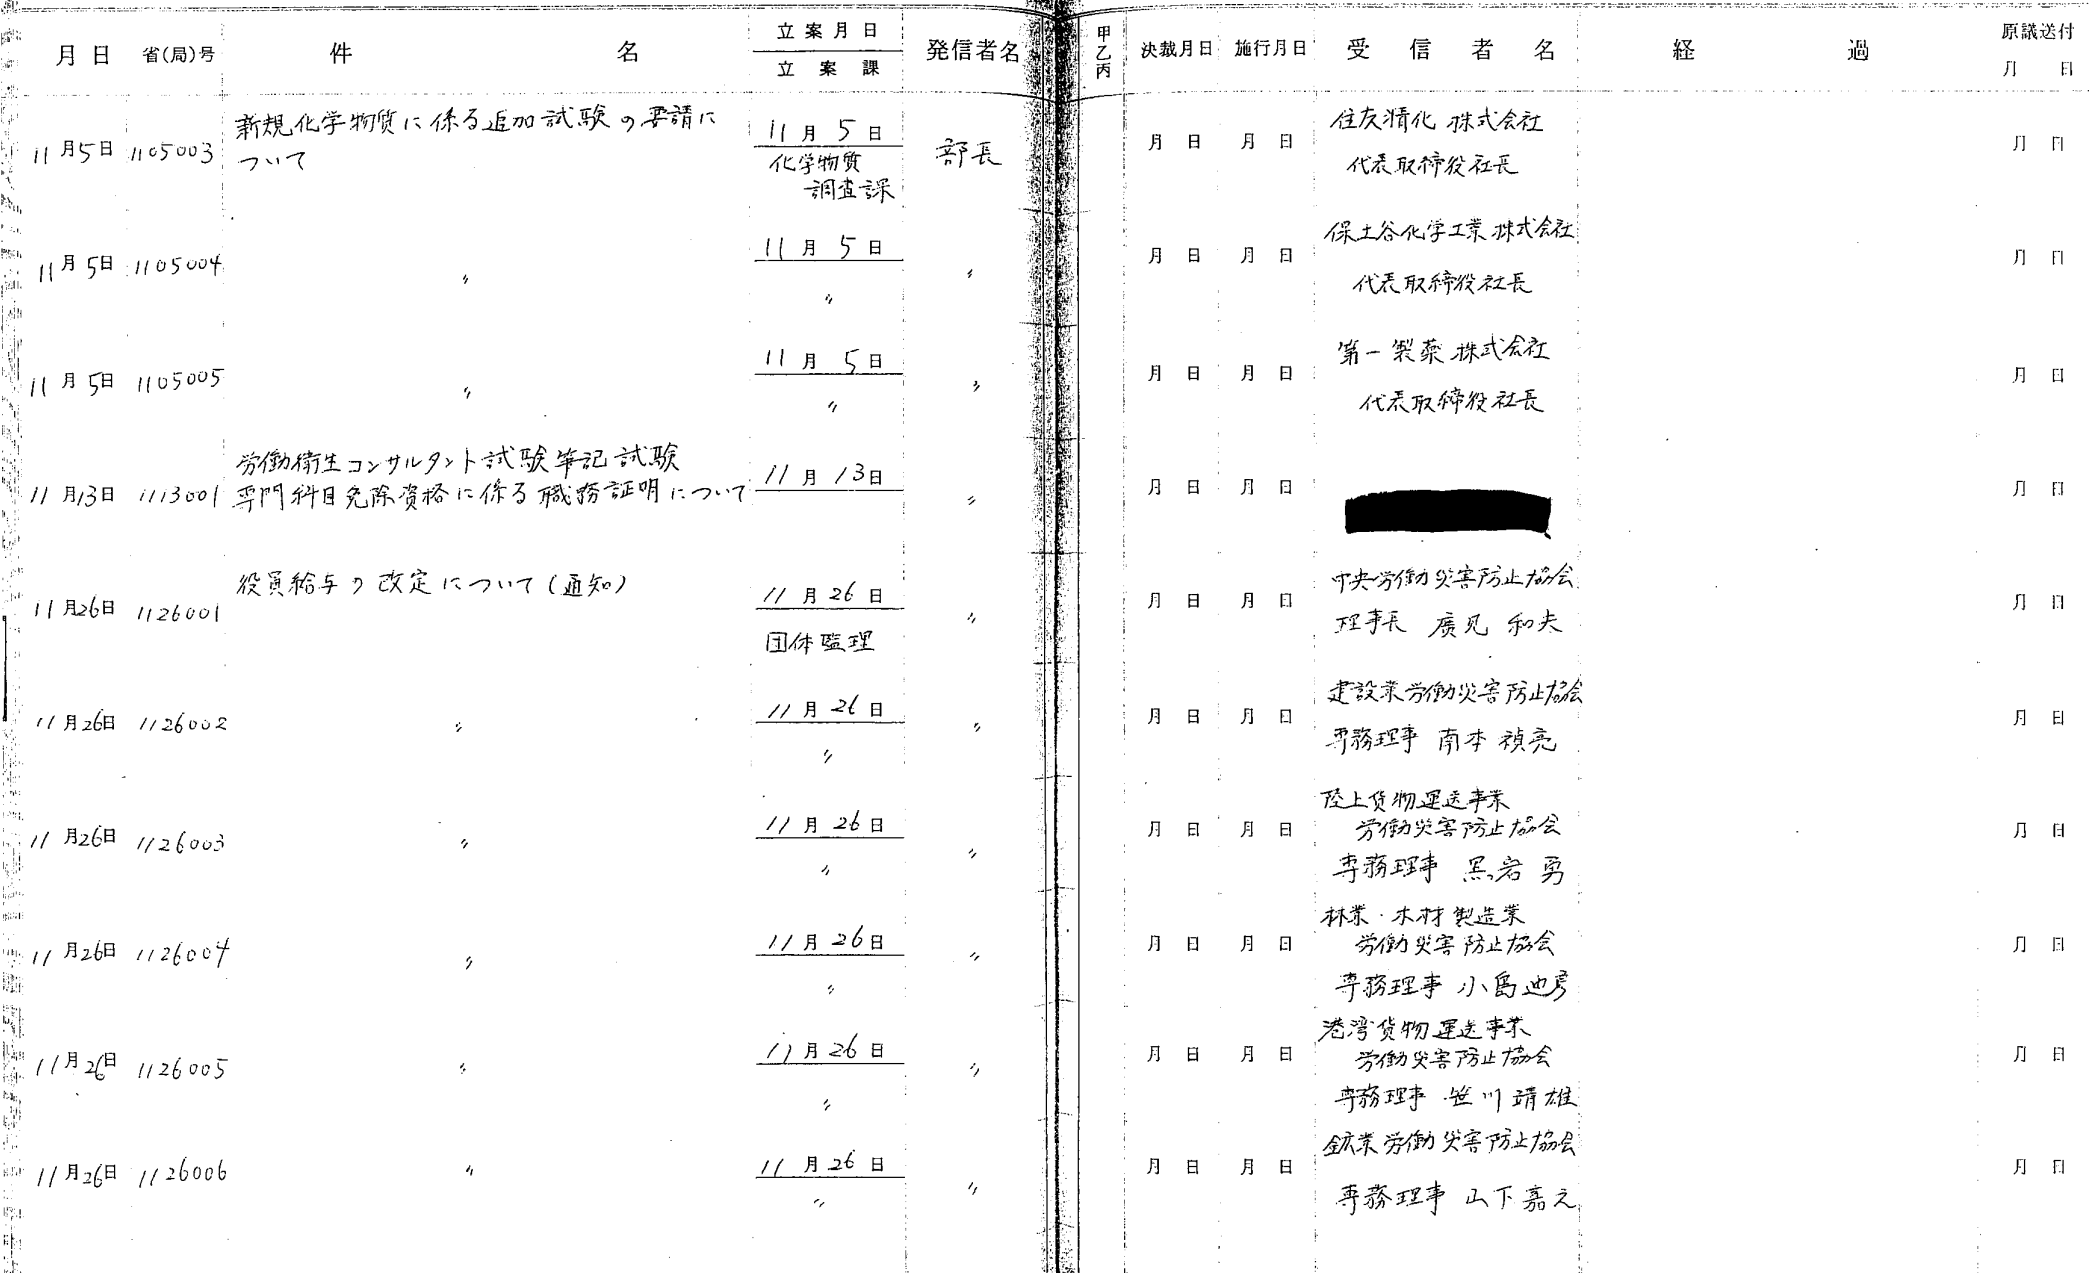 月日 省(局)号 件名 立案月日 発信者名 甲乙丙 決裁月日 施行月日 受信者名 経過 原議送付
立案課 月 日
11月5日 1105003 新規化学物質に係る追加試験の要請に 11月5日 部長 月 日 月 日 住友精化株式会社 月 日
ついて 化学物質 代表取締役社長
調査課
11月5日 1105004 〃 11月5日 〃 月 日 月 日 保土谷化学工業株式会社 月 日
〃 代表取締役社長
11月5日 1105005 〃 11月5日 〃 月 日 月 日 第一製薬株式会社 月 日
〃 代表取締役社長
労働衛生コンサルタント試験筆記試験
11月13日 1113001 専門科目免除資格に係る職務証明について 11月13日 〃 月 日 月 日 月 日
11月26日 1126001 役員給与の改定について(通知) 11月26日 〃 月 日 月 日 中央労働災害防止協会 月 日
団体監理 理事長 廣見 和夫
11月26日 1126002 〃 11月26日 〃 月 日 月 日 建設業労働災害防止協会 月 日
〃 専務理事 南本 禎亮
11月26日 1126003 〃 11月26日 〃 月 日 月 日 陸上貨物運送事業 月 日
労働災害防止協会
〃 専務理事 黒岩 勇
11月26日 1126004 〃 11月26日 〃 月 日 月 日 林業・木材製造業 月 日
労働災害防止協会
〃 専務理事 小島迪彦
11月26日 1126005 〃 11月26日 〃 月 日 月 日 港湾貨物運送事業 月 日
労働災害防止協会
〃 専務理事 笹川靖雄
11月26日 1126006 〃 11月26日 〃 月 日 月 日 鉱業労働災害防止協会 月 日
〃 専務理事 山下嘉之